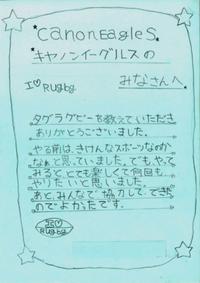 Canon EagleS
キヤノンイーグルスの
みなさんへ
I♡Rugby
タグラグビーを教えていただき
ありがとうございました。
やる前は、きけんなスポーツなのか
なぁと思っていました。でもやって
みると、とても楽しくて何回も
やりたいと思いました。
あと、みんなで協力して、できた
のでよかったです。
I♡
Rugby